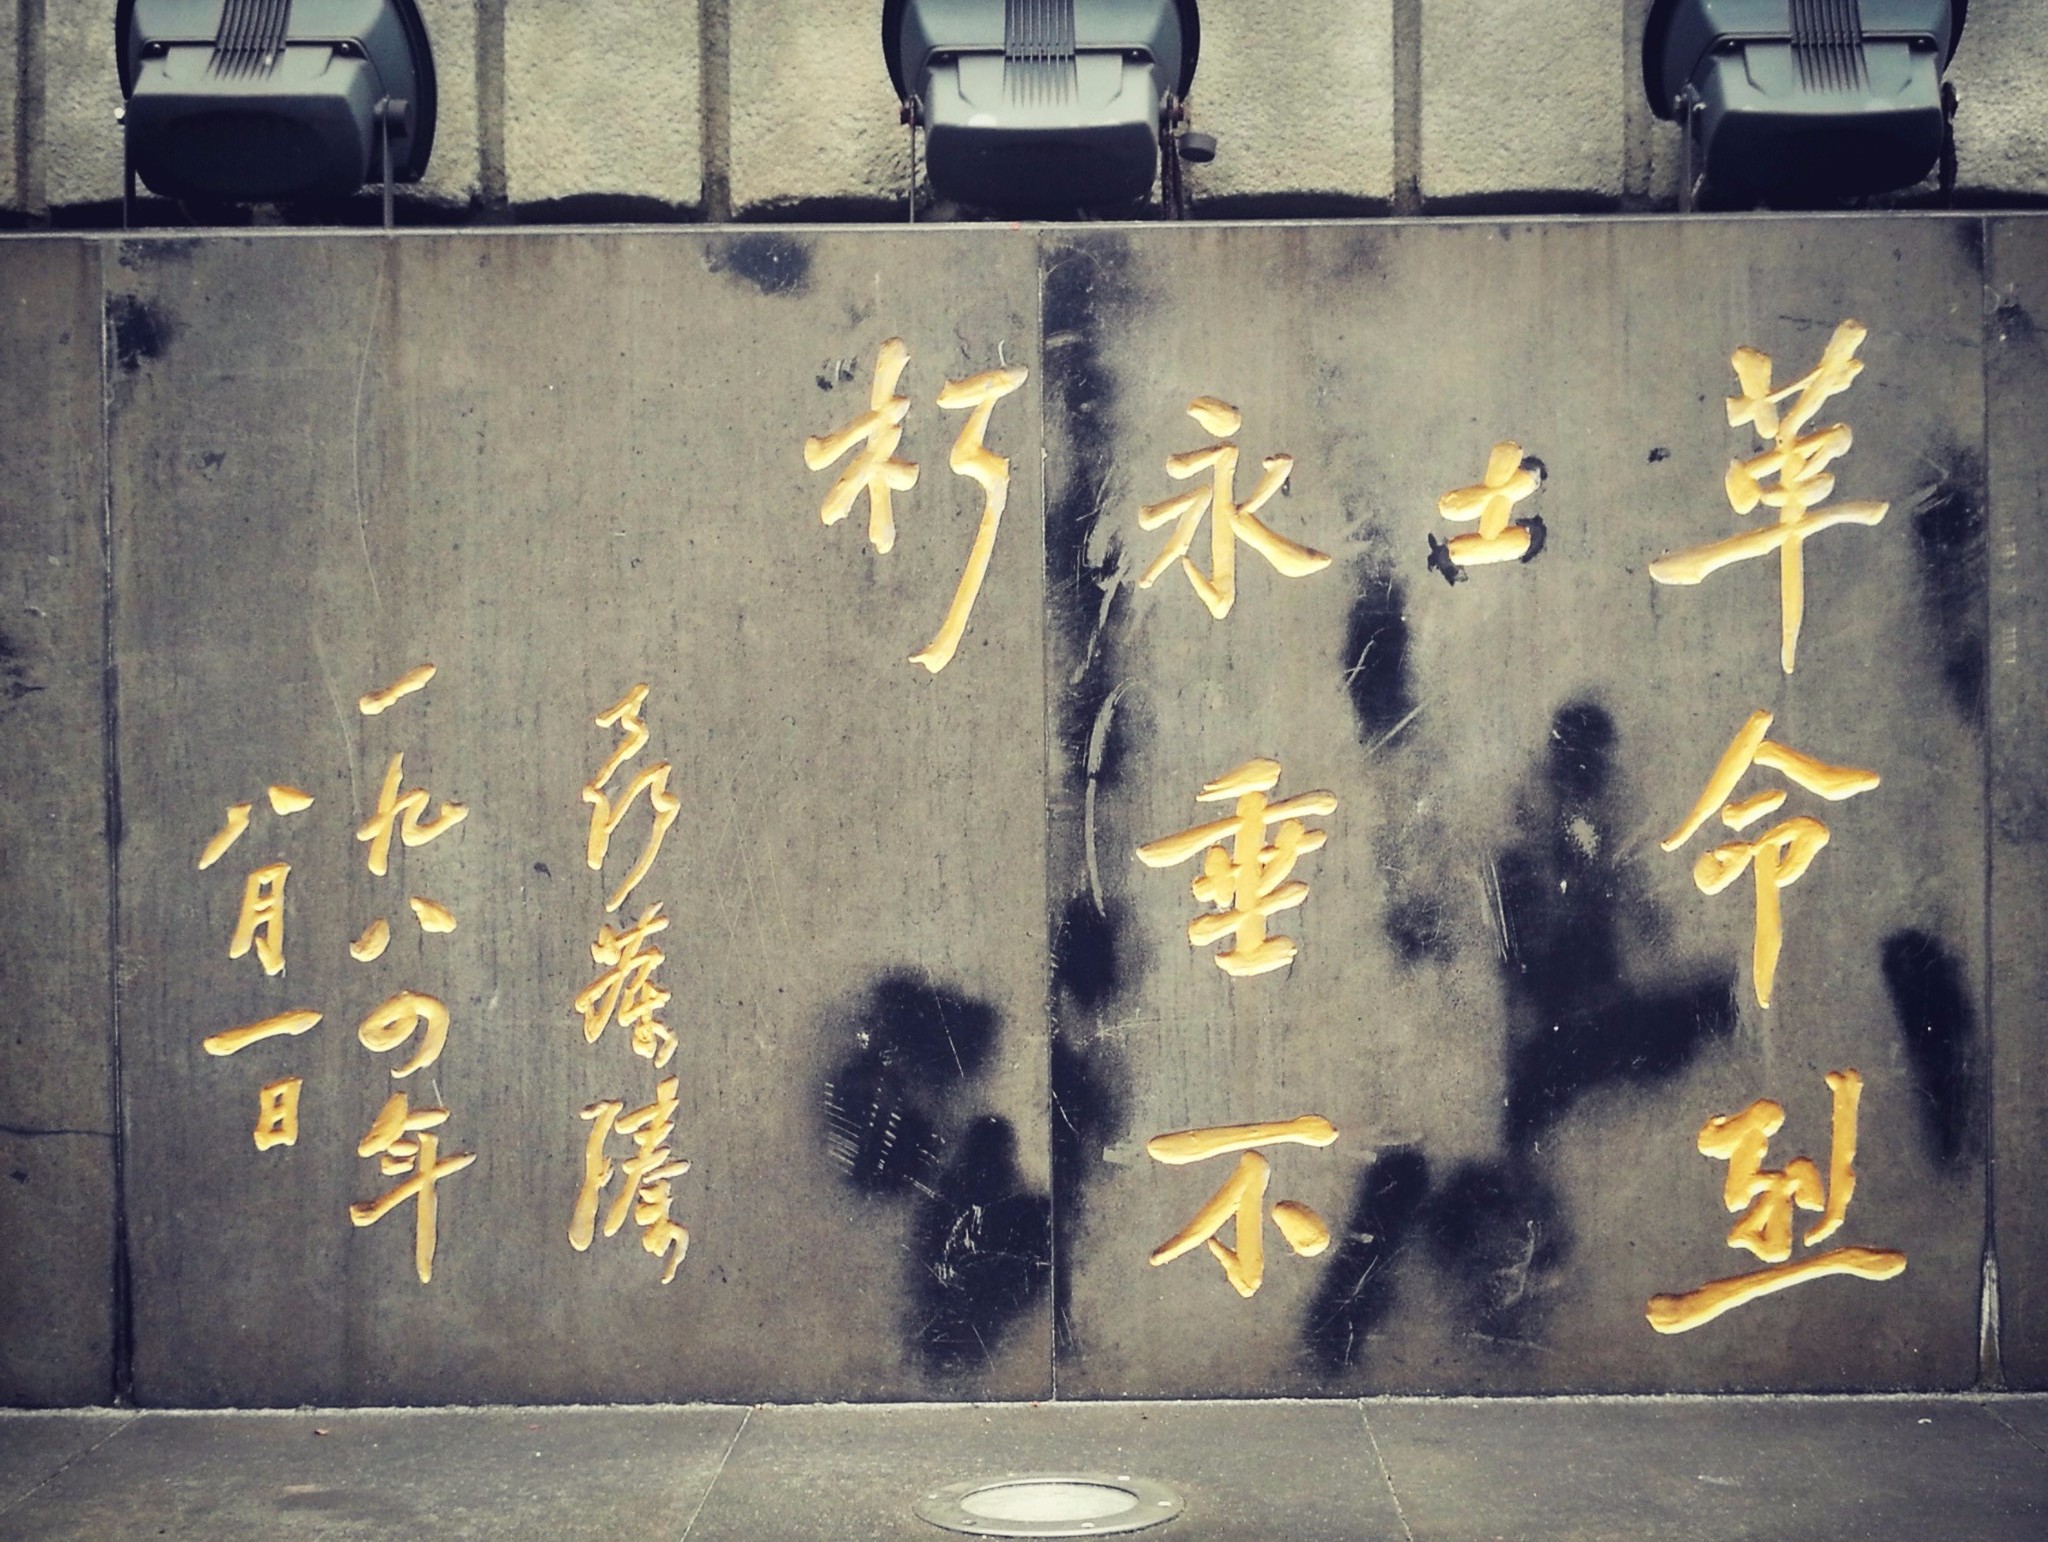 革命烈
士
永垂不
朽
聂荣臻
一九八四年
八月一日